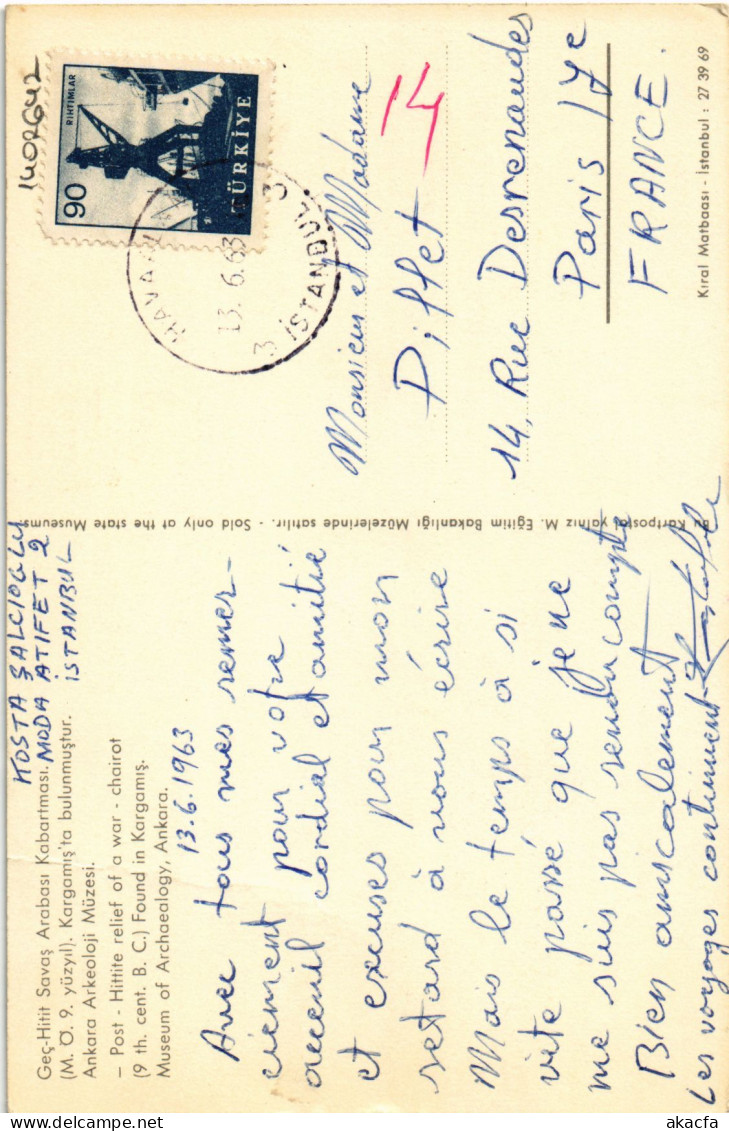 KOSTA ŞALCIOGLU
MODA ATIFET 2
İSTANBUL
Geç-Hitit Savaş Arabası Kabartması.
(M. Ö. 9. yüzyıl). Kargamış'ta bulunmuştur.
Ankara Arkeoloji Müzesi.
— Post - Hittite relief of a war - chairot
(9 th. cent. B. C.) Found in Kargamış.
Museum of Archaealogy, Ankara.
13.6.1963
Avec tous mes remer-
ciement pour votre
acceuil cordial et amitié
et excuses pour mon
retard à vous écrire
Mais le temps à si
vite passé que je ne
me suis pas rendu compte
Bien amicalement
Les voyages continuent
Bu kartpostal yalnız M. Eğitim Bakanlığı Müzelerinde satılır. - Sold only at the state Museums
RIHTIMLAR
90
TÜRKİYE
13.6.63
3 İSTANBUL 3
14
Monsieur et Madame
Piffet
14, Rue Desrenaudes
Paris 17e
FRANCE.
Kıral Matbaası - İstanbul : 27 39 69
akacfa